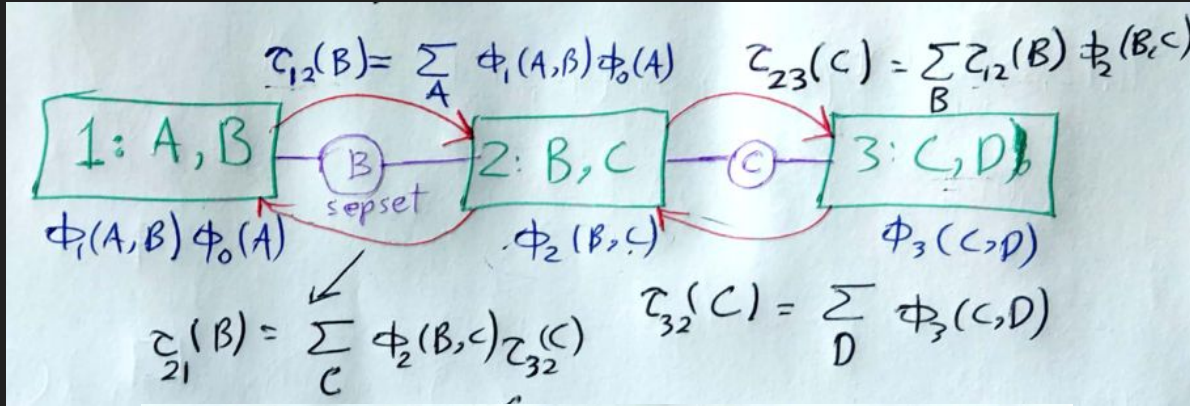 τ₁₂(B) = Σ_A ϕ₁(A,B) ϕ₀(A)
τ₂₃(C) = Σ_B τ₁₂(B) ϕ₂(B,C)
1: A, B
B
sepset
2: B, C
C
3: C, D
ϕ₁(A,B) ϕ₀(A)
ϕ₂(B,C)
ϕ₃(C,D)
τ₂₁(B) = Σ_C ϕ₂(B,C) τ₃₂(C)
τ₃₂(C) = Σ_D ϕ₃(C,D)